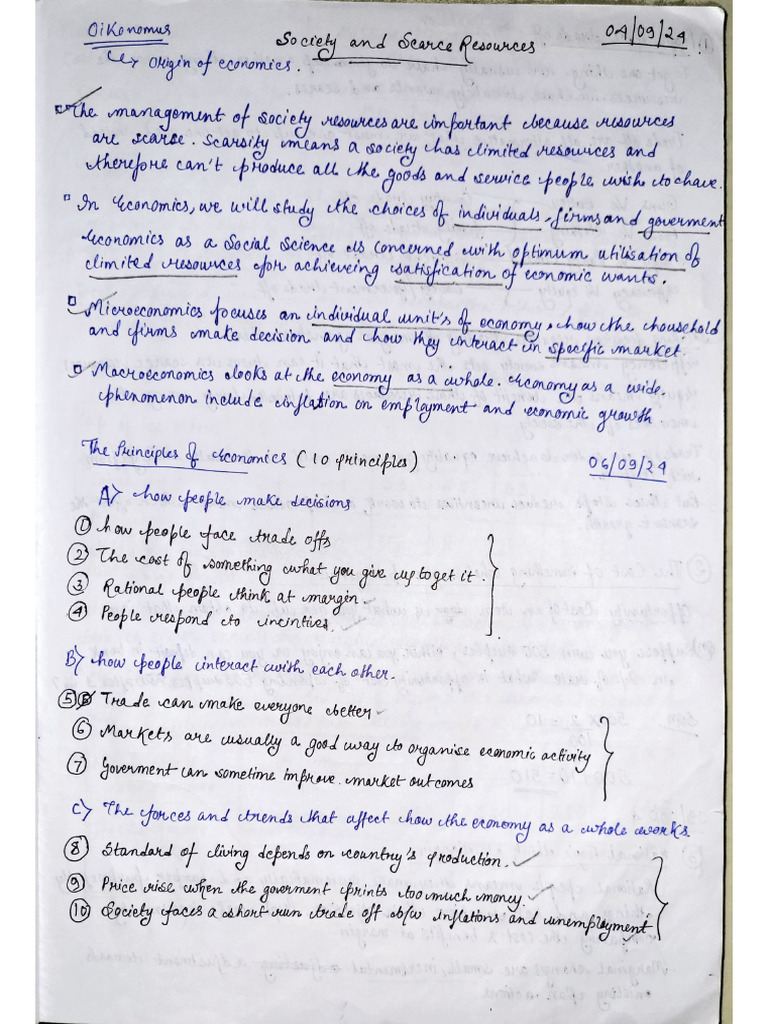 Oikonomus
Society and Scarce Resources.
04/09/24
↳ Origin of economics.
The management of society resources are important because resources
are scarse. Scarsity means a society has limited resources and
therefore can't produce all the goods and service people wish to have.
In Economics, we will study the choices of individuals, firms and goverment
Economics as a Social Science is concerned with optimum utilisation of
limited resources for achieveing satisfication of economic wants.
Microeconomics focuses an individual unit's of economy, how the household
and firms make decision and how they interact in specific market.
Macroeconomics looks at the economy as a whole. Economy as a wide
phenomenon include inflation on employment and economic growth
The Principles of Economics (10 principles)
06/09/24
A) how people make decisions
① how people face trade offs
② The cost of something what you give up to get it.
③ Rational people think at margin.
④ People respond to incintives.
B) how people interact with each other.
⑤ Trade can make everyone better
⑥ Markets are usually a good way to organise economic activity
⑦ Goverment can sometime improve market outcomes
C) The forces and trends that affect how the economy as a whole works.
⑧ Standard of living depends on country's production.
⑨ Price rise when the goverment prints too much money.
⑩ Society faces a short run trade off b/w inflations and unemployment